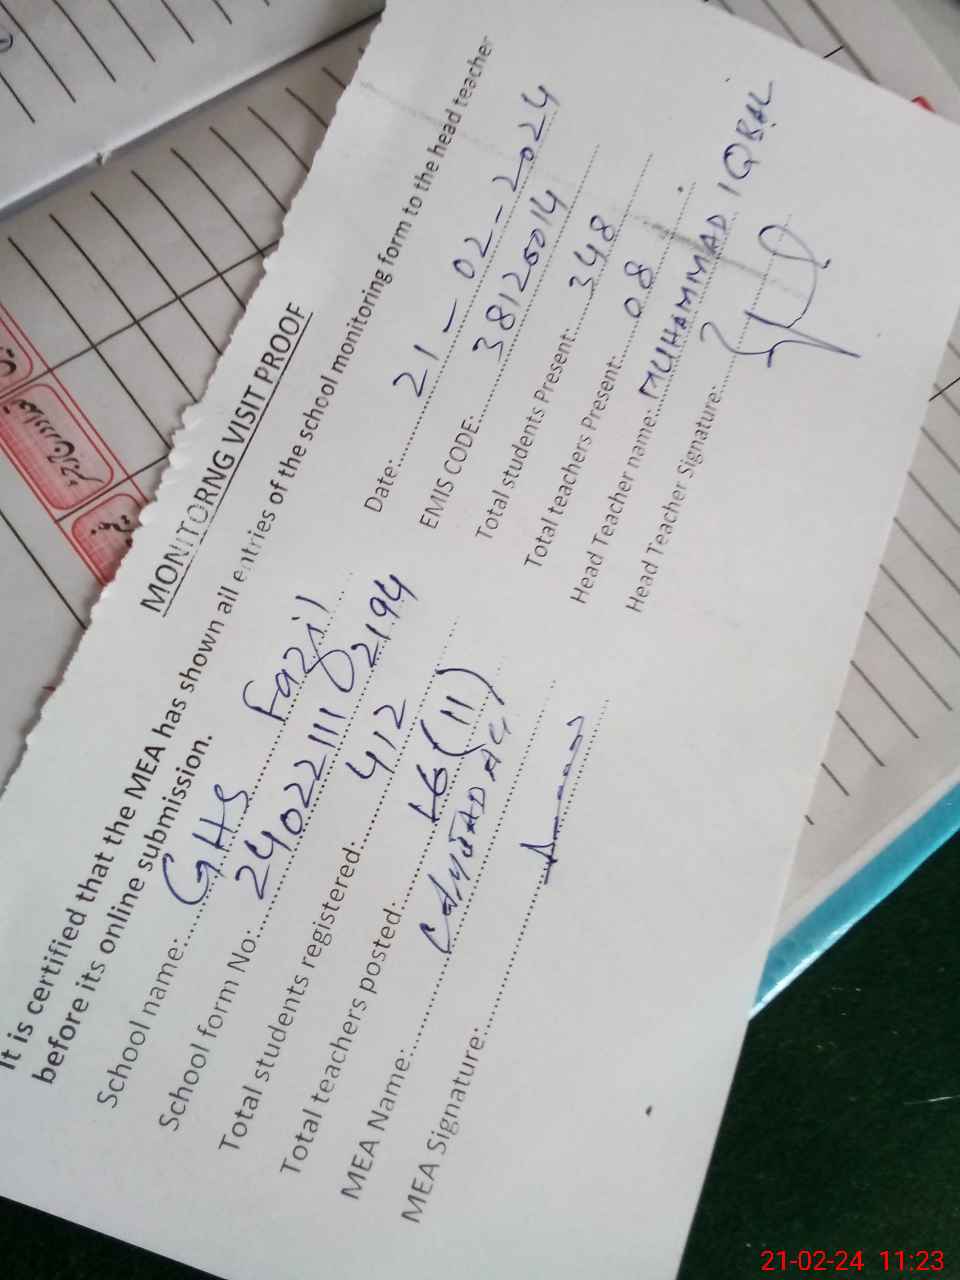 MONITORNG VISIT PROOF
It is certified that the MEA has shown all entries of the school monitoring form to the head teacher
before its online submission.
School name: GHS Fazil
Date: 21-02-2024
School form No: 24022111102194
EMIS CODE: 38120014
Total students registered: 412
Total students Present: 348
Total teachers posted: 16(11)
Total teachers Present: 08
MEA Name:
Head Teacher name: MUHAMMAD IQBAL
MEA Signature:
Head Teacher Signature:
21-02-24 11:23